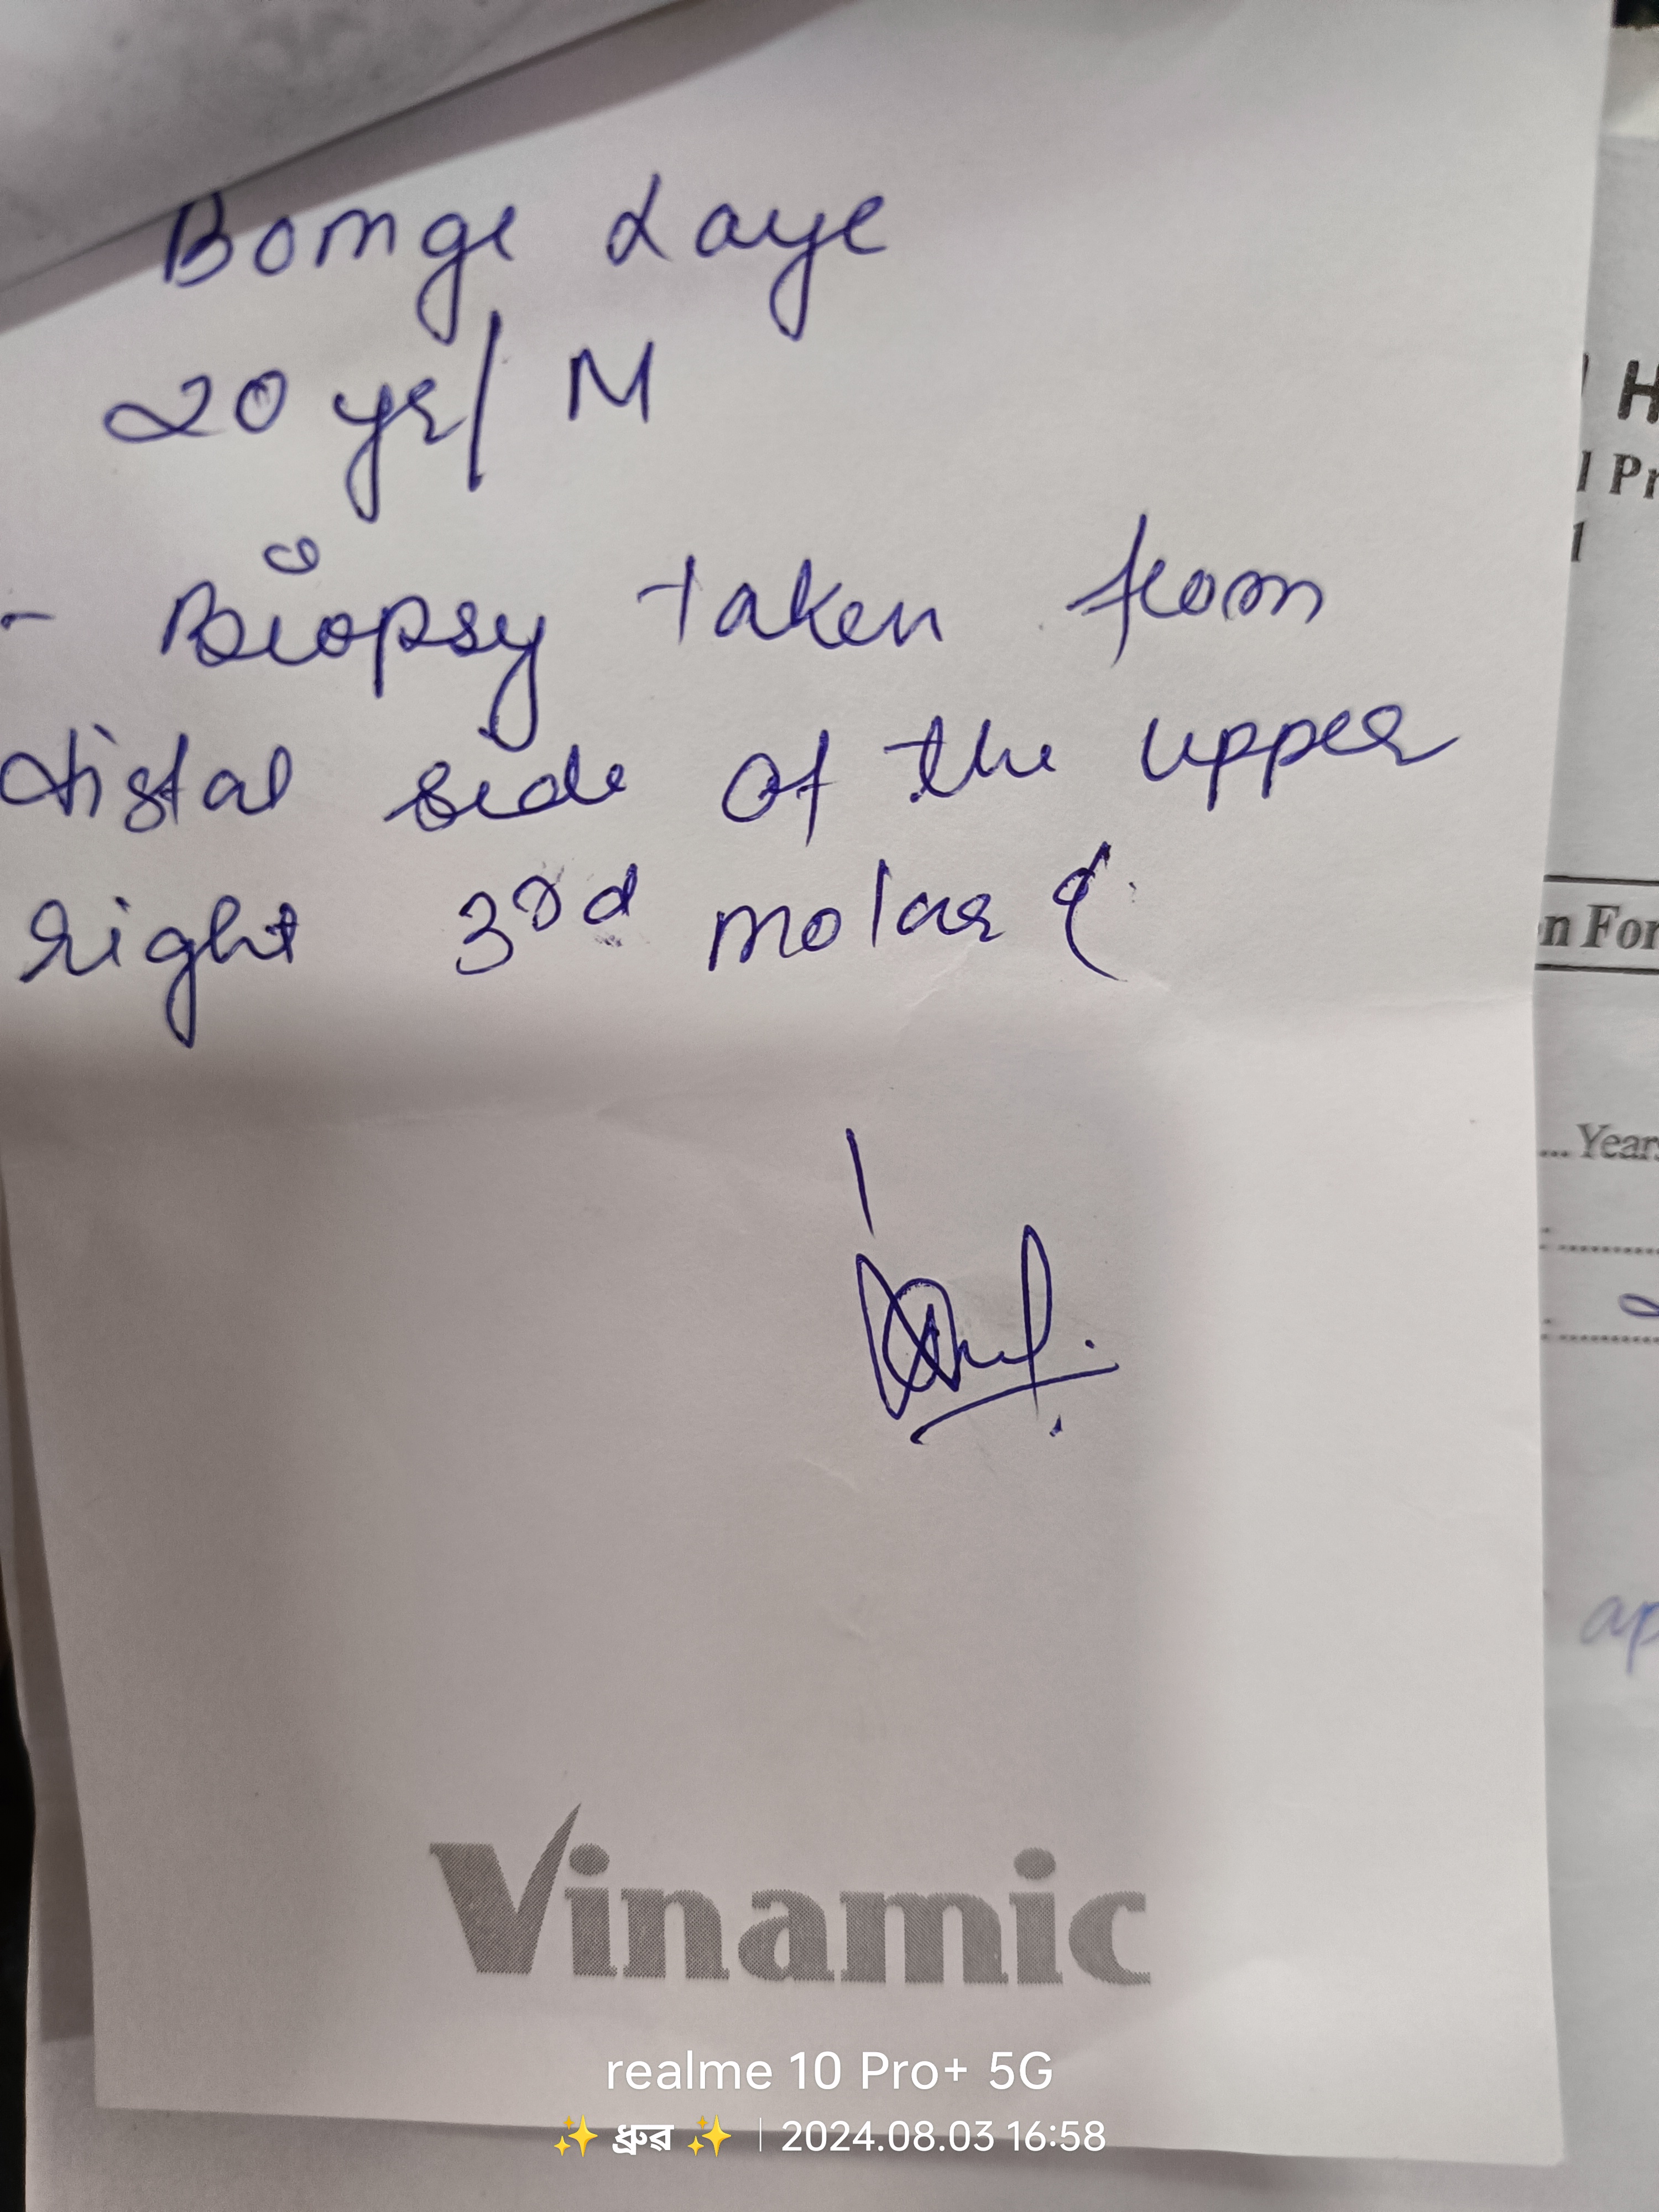 Bomge Laye
20 yr/ M
- Biopsy taken from
distal side of the upper
right 3rd molar &
H
l Pr
1
n For
... Years
ap
Vinamic
realme 10 Pro+ 5G
✨ ধ্রুৱ ✨ | 2024.08.03 16:58